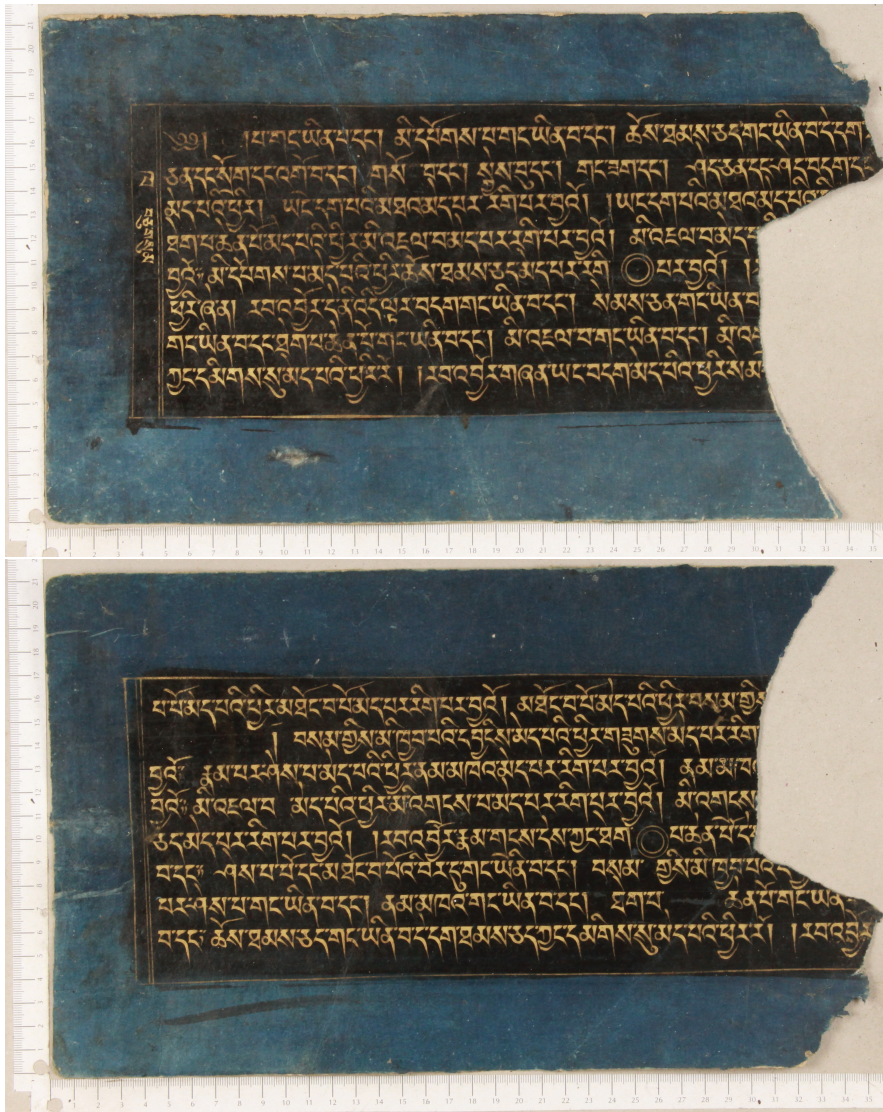 ༄༅། །པ་གང་ཡིན་བ་དང། མི་དམིགས་པ་གང་ཡིན་བ་དང། ཆོས་ཐམས་ཅད་གང་ཡིན་བ་དེ་དག་
ཅན་དང་སྲོག་དང་འགྲོ་བ་དང། གསོ་བ་དང། སྐྱེས་བུ་དང། གང་ཟག་དང། ཤེད་ཅན་དང་ཤེད་བདག་དང་
མེད་པའི་ཕྱིར། ཡང་དག་པའི་མཐའ་མེད་པར་རིག་པར་བྱའོ། །ཡང་དག་པའི་མཐའ་མེད་པའི་
ཐེག་པ་ཆེན་པོ་མེད་པའི་ཕྱིར་མི་འཇལ་བ་མེད་པར་རིག་པར་བྱའོ། མི་འཇལ་བ་མེད་པ
བྱའོ༔ མི་དམིགས་པ་མེད་པའི་ཕྱིར་ཆོས་ཐམས་ཅད་མེད་པར་རིག་པར་བྱའོ། །
ཕྱིར་ཞེ་ན། རབ་འབྱོར་དེ་ནི་འདི་ལྟར་བདག་གང་ཡིན་བ་དང། སེམས་ཅན་གང་ཡིན་བ
གང་ཡིན་བ་དང་ཐེག་པ་ཆེན་པོ་གང་ཡིན་བ་དང། མི་འཇལ་བ་གང་ཡིན་བ་དང། མི་འ
ཀྱང་དམིགས་སུ་མེད་པའི་ཕྱིར་རོ། །རབ་འབྱོར་གཞན་ཡང་བདག་མེད་པའི་ཕྱིར་སེམ
པ་པོ་མེད་པའི་ཕྱིར་མཐོང་བ་པོ་མེད་པར་རིག་པར་བྱའོ། མཐོང་བ་པོ་མེད་པའི་ཕྱིར་བསམ་གྱིས་
། བསམ་གྱིས་མི་ཁྱབ་པའི་དབྱིངས་མེད་པའི་ཕྱིར་གཟུགས་མེད་པར་རིག་
བྱའོ༔ རྣམ་པར་ཤེས་པ་མེད་པའི་ཕྱིར་ནམ་མཁའ་མེད་པར་རིག་པར་བྱའོ། ནམ་མ
བྱའོ༔ མི་འཇལ་བ་མེད་པའི་ཕྱིར་མི་འགངས་པ་མེད་པར་རིག་པར་བྱའོ། མི་འགངས་
ཅད་མེད་པར་རིག་པར་བྱའོ། །རབ་འབྱོར་རྣམ་གྲངས་དེས་ཀྱང་ཐེག་པ་ཆེན་པོ་ད
བ་དང༔ ཤེས་པ་པོ་དང་མཐོང་བ་པོའི་བར་དུ་གང་ཡིན་བ་དང། བསམ་གྱིས་མི་ཁྱབ་པའི་དབྱིངས
པར་ཤེས་པ་གང་ཡིན་བ་དང། ནམ་མཁའ་གང་ཡིན་བ་དང། ཐེག་པ་ཆེན་པོ་གང་ཡིན་
བ་དང༔ ཆོས་ཐམས་ཅད་གང་ཡིན་བ་དེ་དག་ཐམས་ཅད་ཀྱང་དམིགས་སུ་མེད་པའི་ཕྱིར་རོ། །རབ་འབྱོར